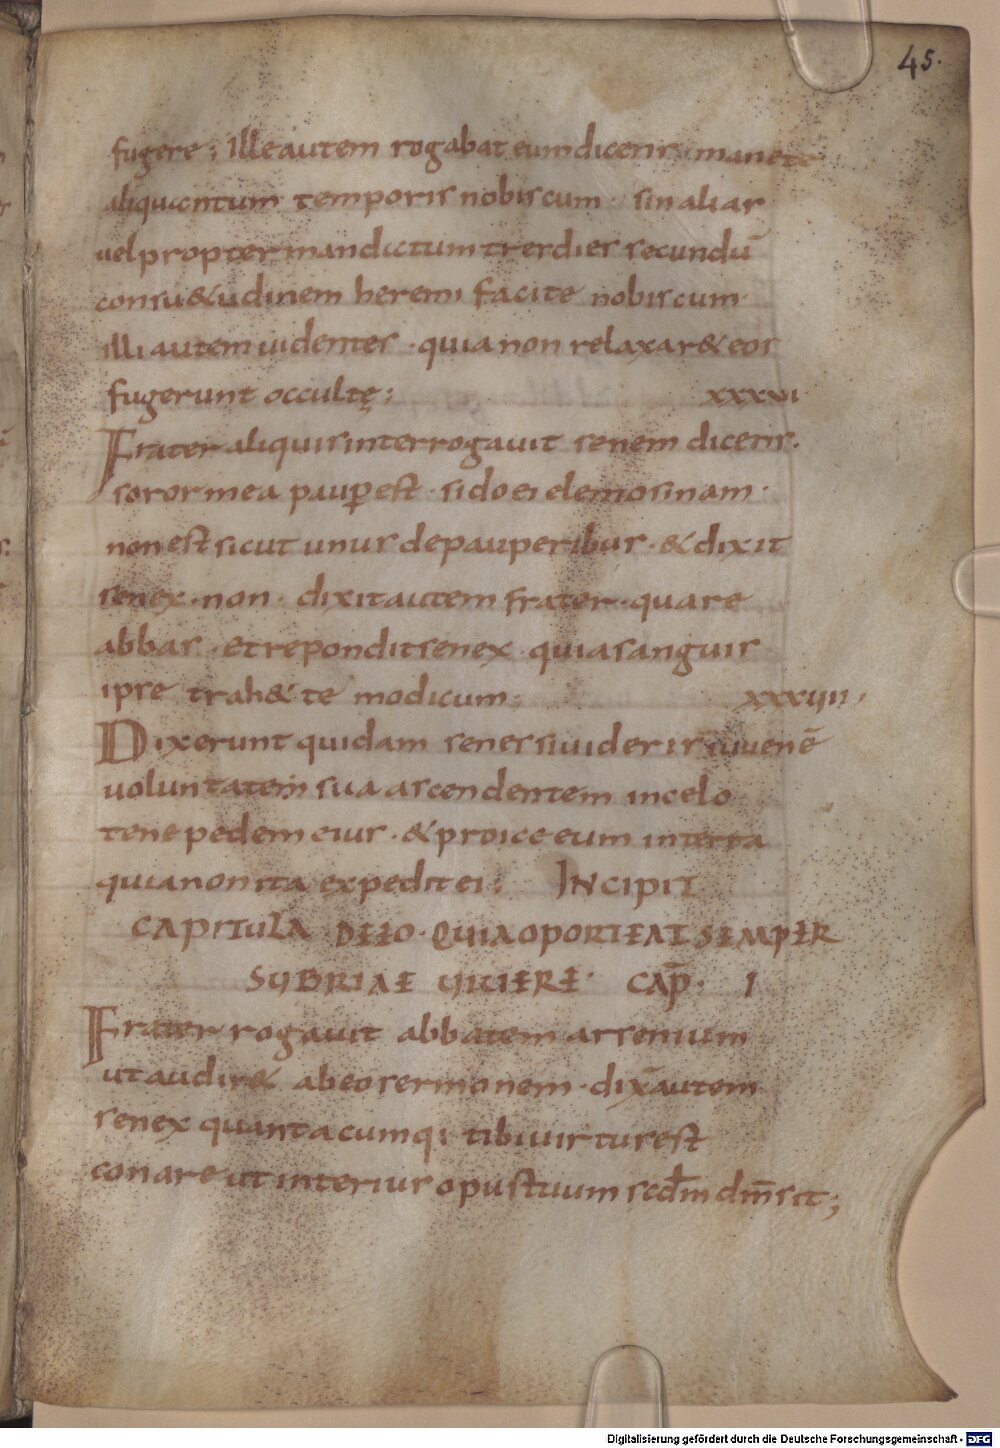 45.
fugere; Ille autem rogabat eum dicens manete
aliquantum temporis nobiscum· sin alias
uel propter mandatum tres dies secundū
consu&udinem heremi facite nobiscum·
illi autem uidentes·quia non relaxar& eos
fugerunt occultę; xxxvi
Frater aliquis interrogauit senem dicens.
soror mea paup̲ est·si do ei elemosinam·
non est sicut unus de pauperibus·& dixit
senex·non· dixit autem frater·quare
abbas·et repondit senex quia sanguis
ipse trah& te modicum;
Dixerunt quidam senes si uideris iuuenē
uoluntatem sua ascendentem in celo
tene pedem eius·& proice eum in terra
quia non ita expedit ei; INCIPIT
CAPITULA QUIA OPORTEAT SEMPER
SUBRIAE VIUERE· CAP̄· I
Frater rogauit abbatem arsenium
ut audir& ab eo sermonem·dix̄ autem
senex quanta cumq; tibi uirtus est
conare ut interius opus tuum scd̄m dm̄ sit;
Digitalisierung gefördert durch die Deutsche Forschungsgemeinschaft - DFG